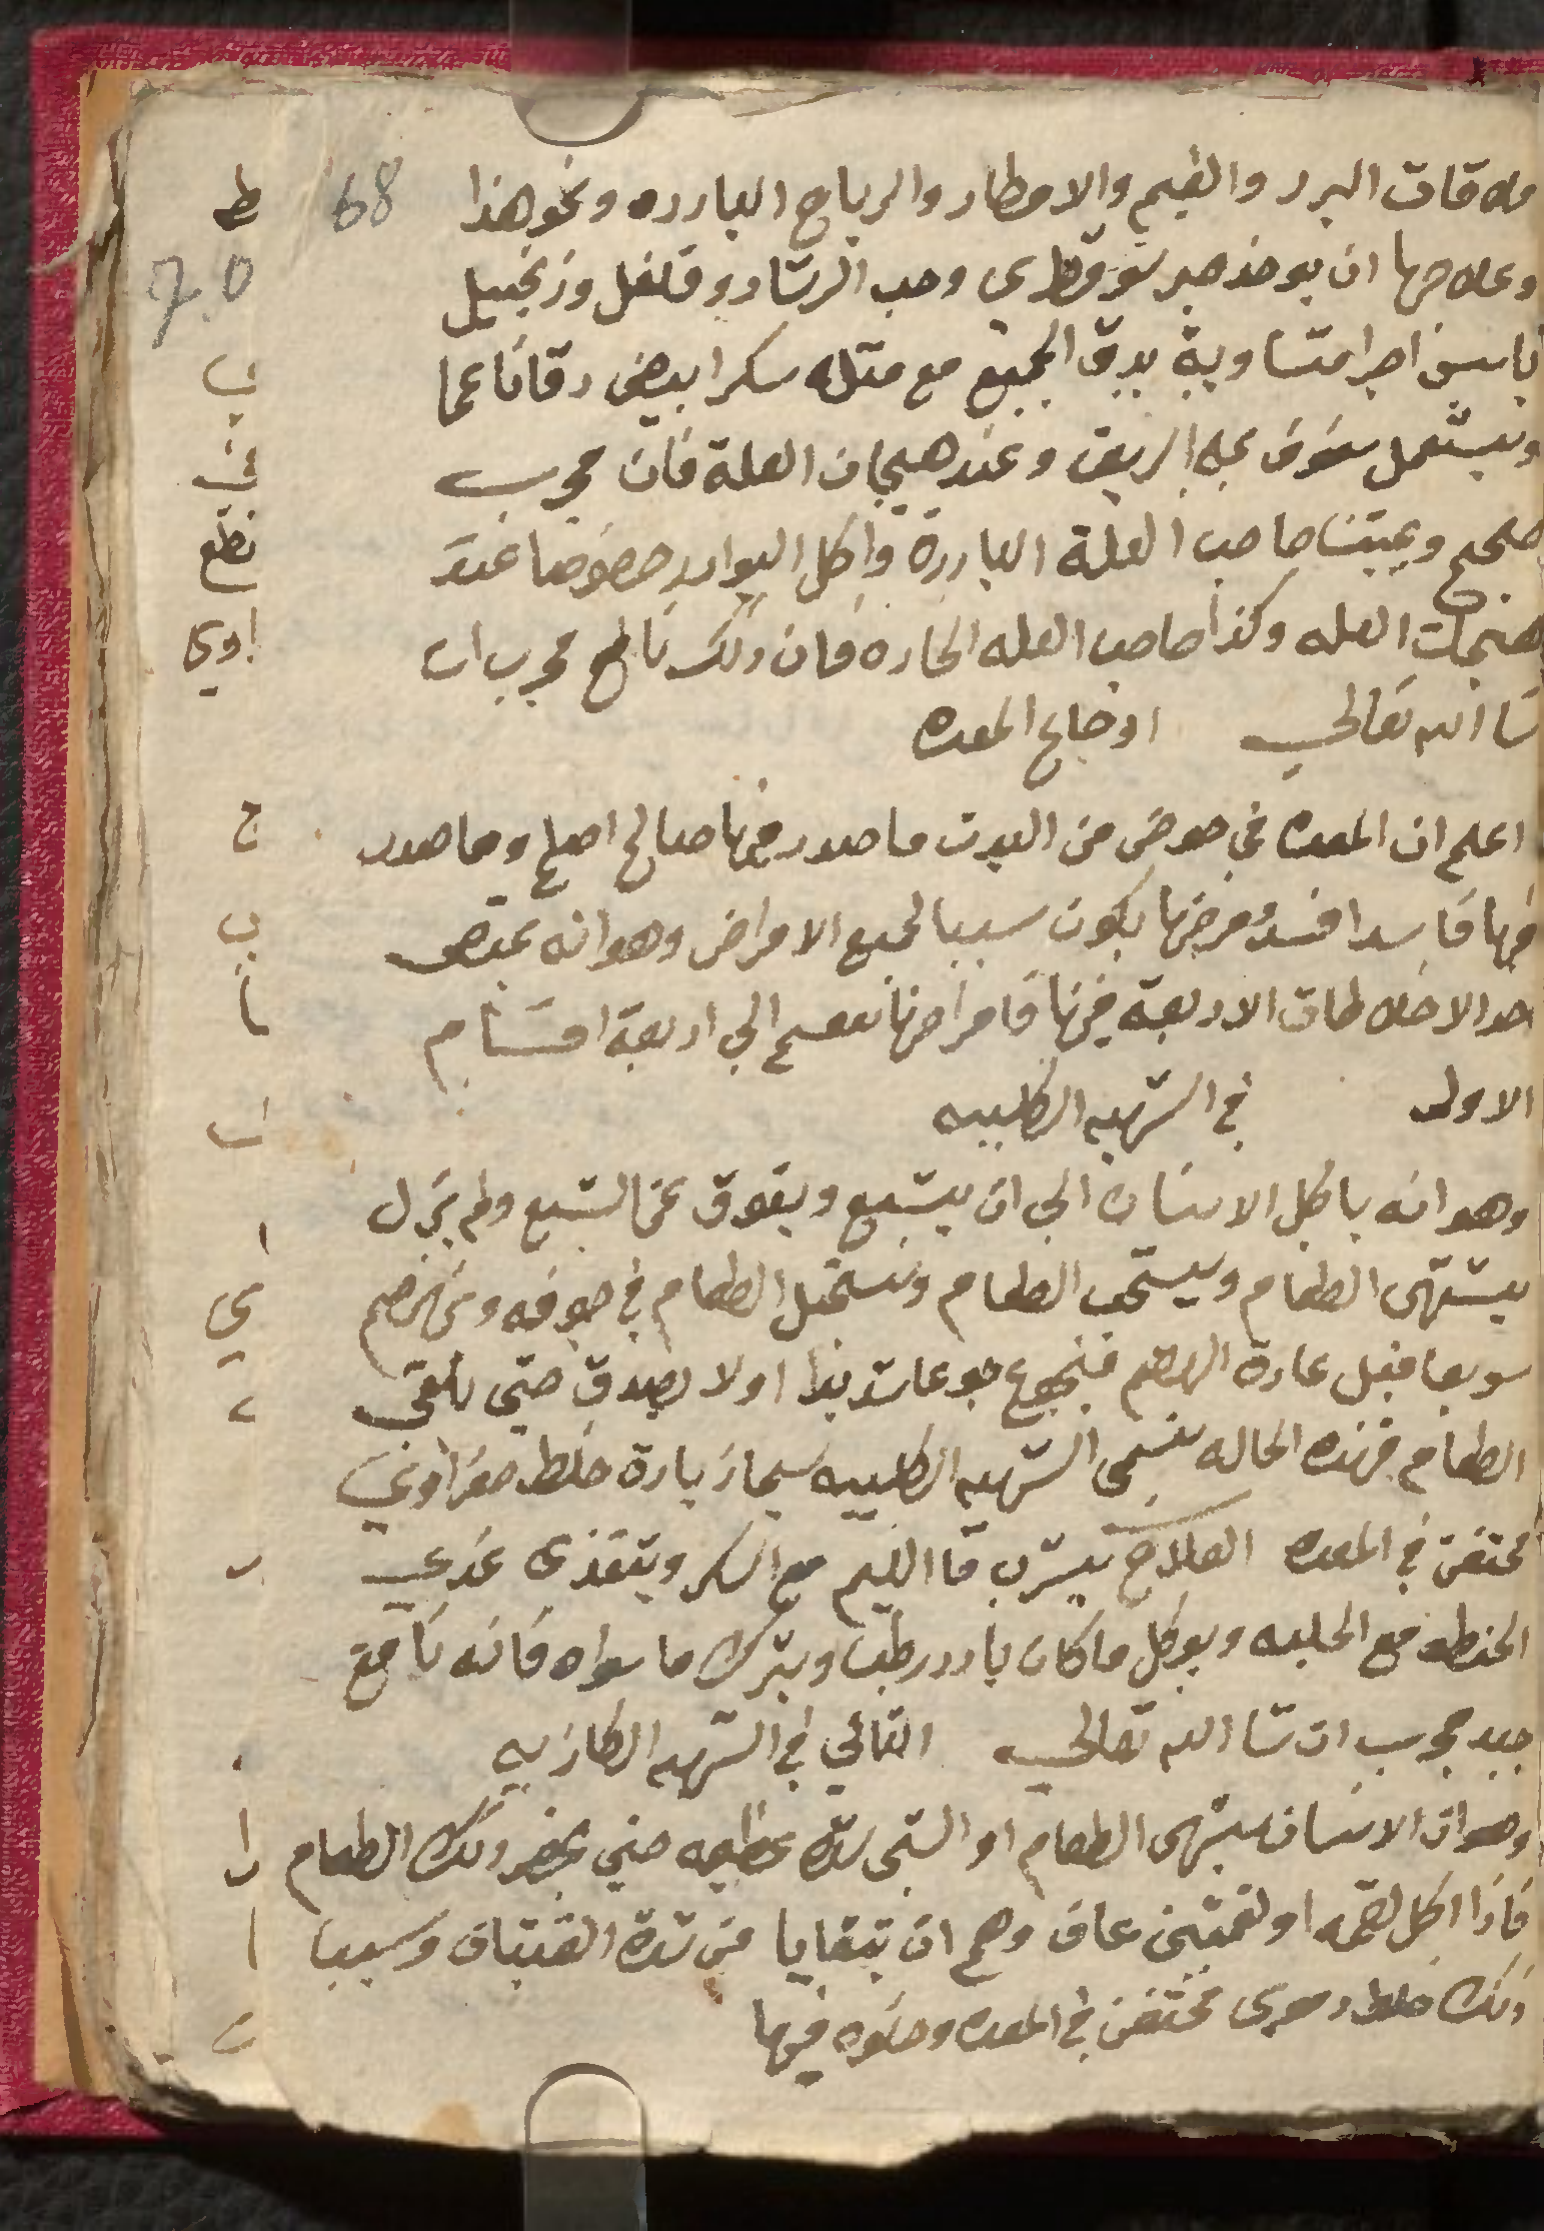 68
ملاقات البرد والغيم والامطار والرياح البارده ونحو هذا
وعلاجها ان يوخذ صبر سوقطري وحب الرشاد وفلفل وزنجبيل
يابس اجزا متساوية يدق الجميع مع مثله سكر ابيض دقا ناعما
ويستعمل سفوف على الريق وعند هيجان العلة فان مجرب
صحيح ويجتنب صاحب العلة الباردة واكل البوارد خصوصا عند
هيجات العله وكذا صاحب العله الحاره فان ذلك نافع مجرب ان
شا الله تعالى اوجاع المعده
اعلم ان المعده في حوض من البدن ما صدر فيها صالح اصلح وما صدر
فيها فاسدا فسد ومرضها يكون سببا لجميع الامراض وهو انه
احد الاخلاطات الاربعة فيها فامراضها تنقسم الي اربعة اقسام
الاول في الشهيه الكلبيه
وهو انه ياكل الانسان الي ان يشبع ويفوق عن الشبع ولم يزل
يشتهى الطعام ويستحب الطعام ويستحيل الطعام في جوفه وينهضم
سريعا قبل عادة الهضم فيجوع جوعا شديدا اولا يصدق حتى يلقى
الطعام فهذه الحاله تسمى الشهيه الكلبيه زيادة خلط صفراوي
محتقن في المعده العلاج يشرب ما الليم مع السكر ويتغذى
الحنطه مع الحلبه ويوكل ما كان بارد رطب ويترك ما سواه فانه نافع
جيد مجرب ان شا الله تعالى الثاني في الشهيه الكاذبيه
وهو ان الانسان يشتهى الطعام او الشى شهوة عظيمه حتي يحضر ذلك الطعام
فاذا اكل لقمه او لقمتين عاف وهم ان يتقايا من شدة الغثيان وسببا
ذلك خلط دموى محتقن في المعده وحلوه فيها